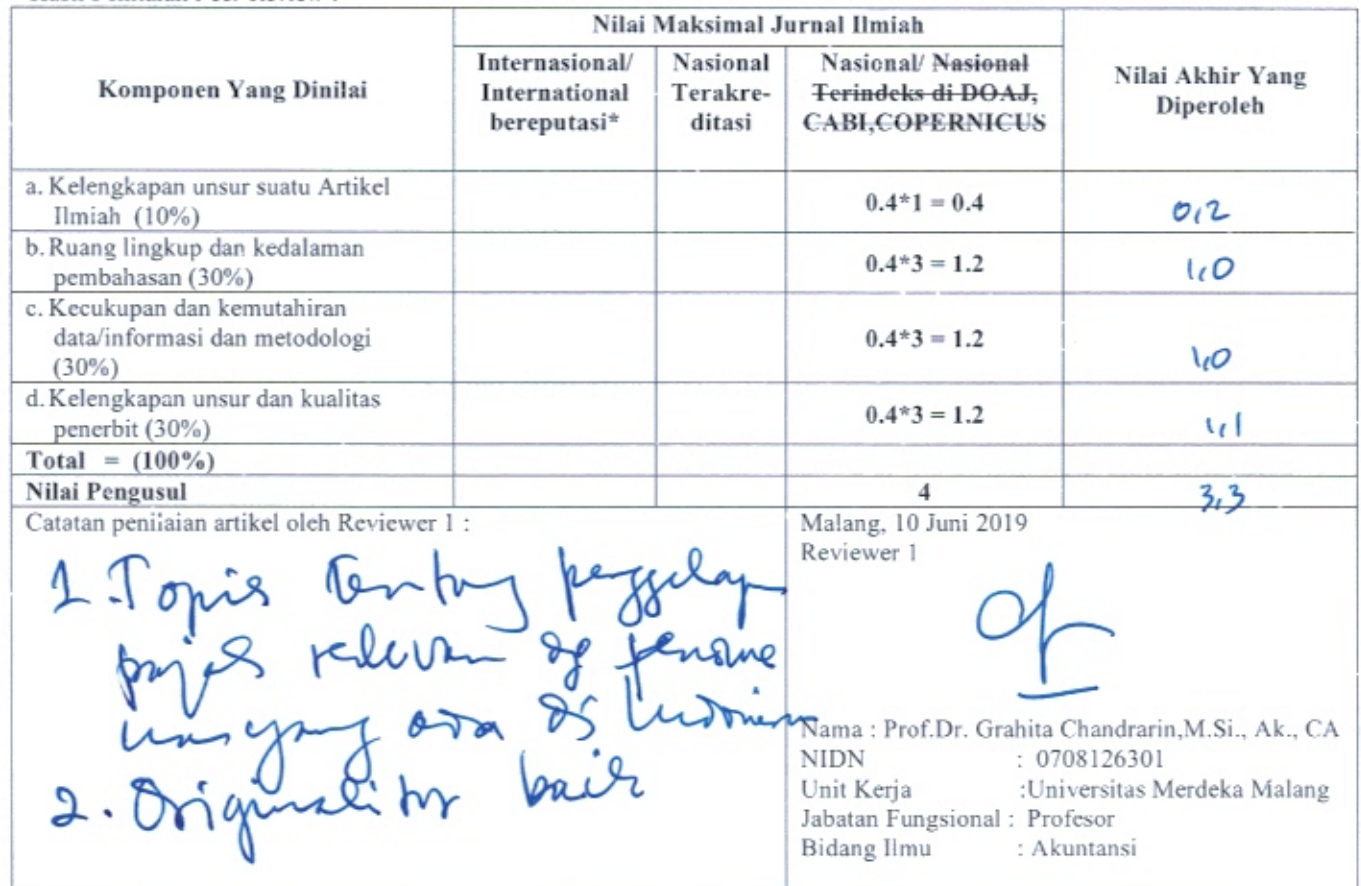 Nilai Maksimal Jurnal Ilmiah
Komponen Yang Dinilai
Internasional/
International
bereputasi*
Nasional
Terakre-
ditasi
Nasional/ Nasional
Terindeks di DOAJ,
CABI,COPERNICUS
Nilai Akhir Yang
Diperoleh
a. Kelengkapan unsur suatu Artikel
Ilmiah (10%)
0.4*1 = 0.4
0,2
b. Ruang lingkup dan kedalaman
pembahasan (30%)
0.4*3 = 1.2
1,0
c. Kecukupan dan kemutahiran
data/informasi dan metodologi
(30%)
0.4*3 = 1.2
1,0
d. Kelengkapan unsur dan kualitas
penerbit (30%)
0.4*3 = 1.2
1,1
Total = (100%)
Nilai Pengusul
4
3,3
Catatan penilaian artikel oleh Reviewer 1 :
1. Topik tentang penggelapan
pajak relevan dg fenome
nas yang ada di Indonesia
2. Originalitas baik
Malang, 10 Juni 2019
Reviewer 1
Nama : Prof.Dr. Grahita Chandrarin,M.Si., Ak., CA
NIDN : 0708126301
Unit Kerja :Universitas Merdeka Malang
Jabatan Fungsional : Profesor
Bidang Ilmu : Akuntansi